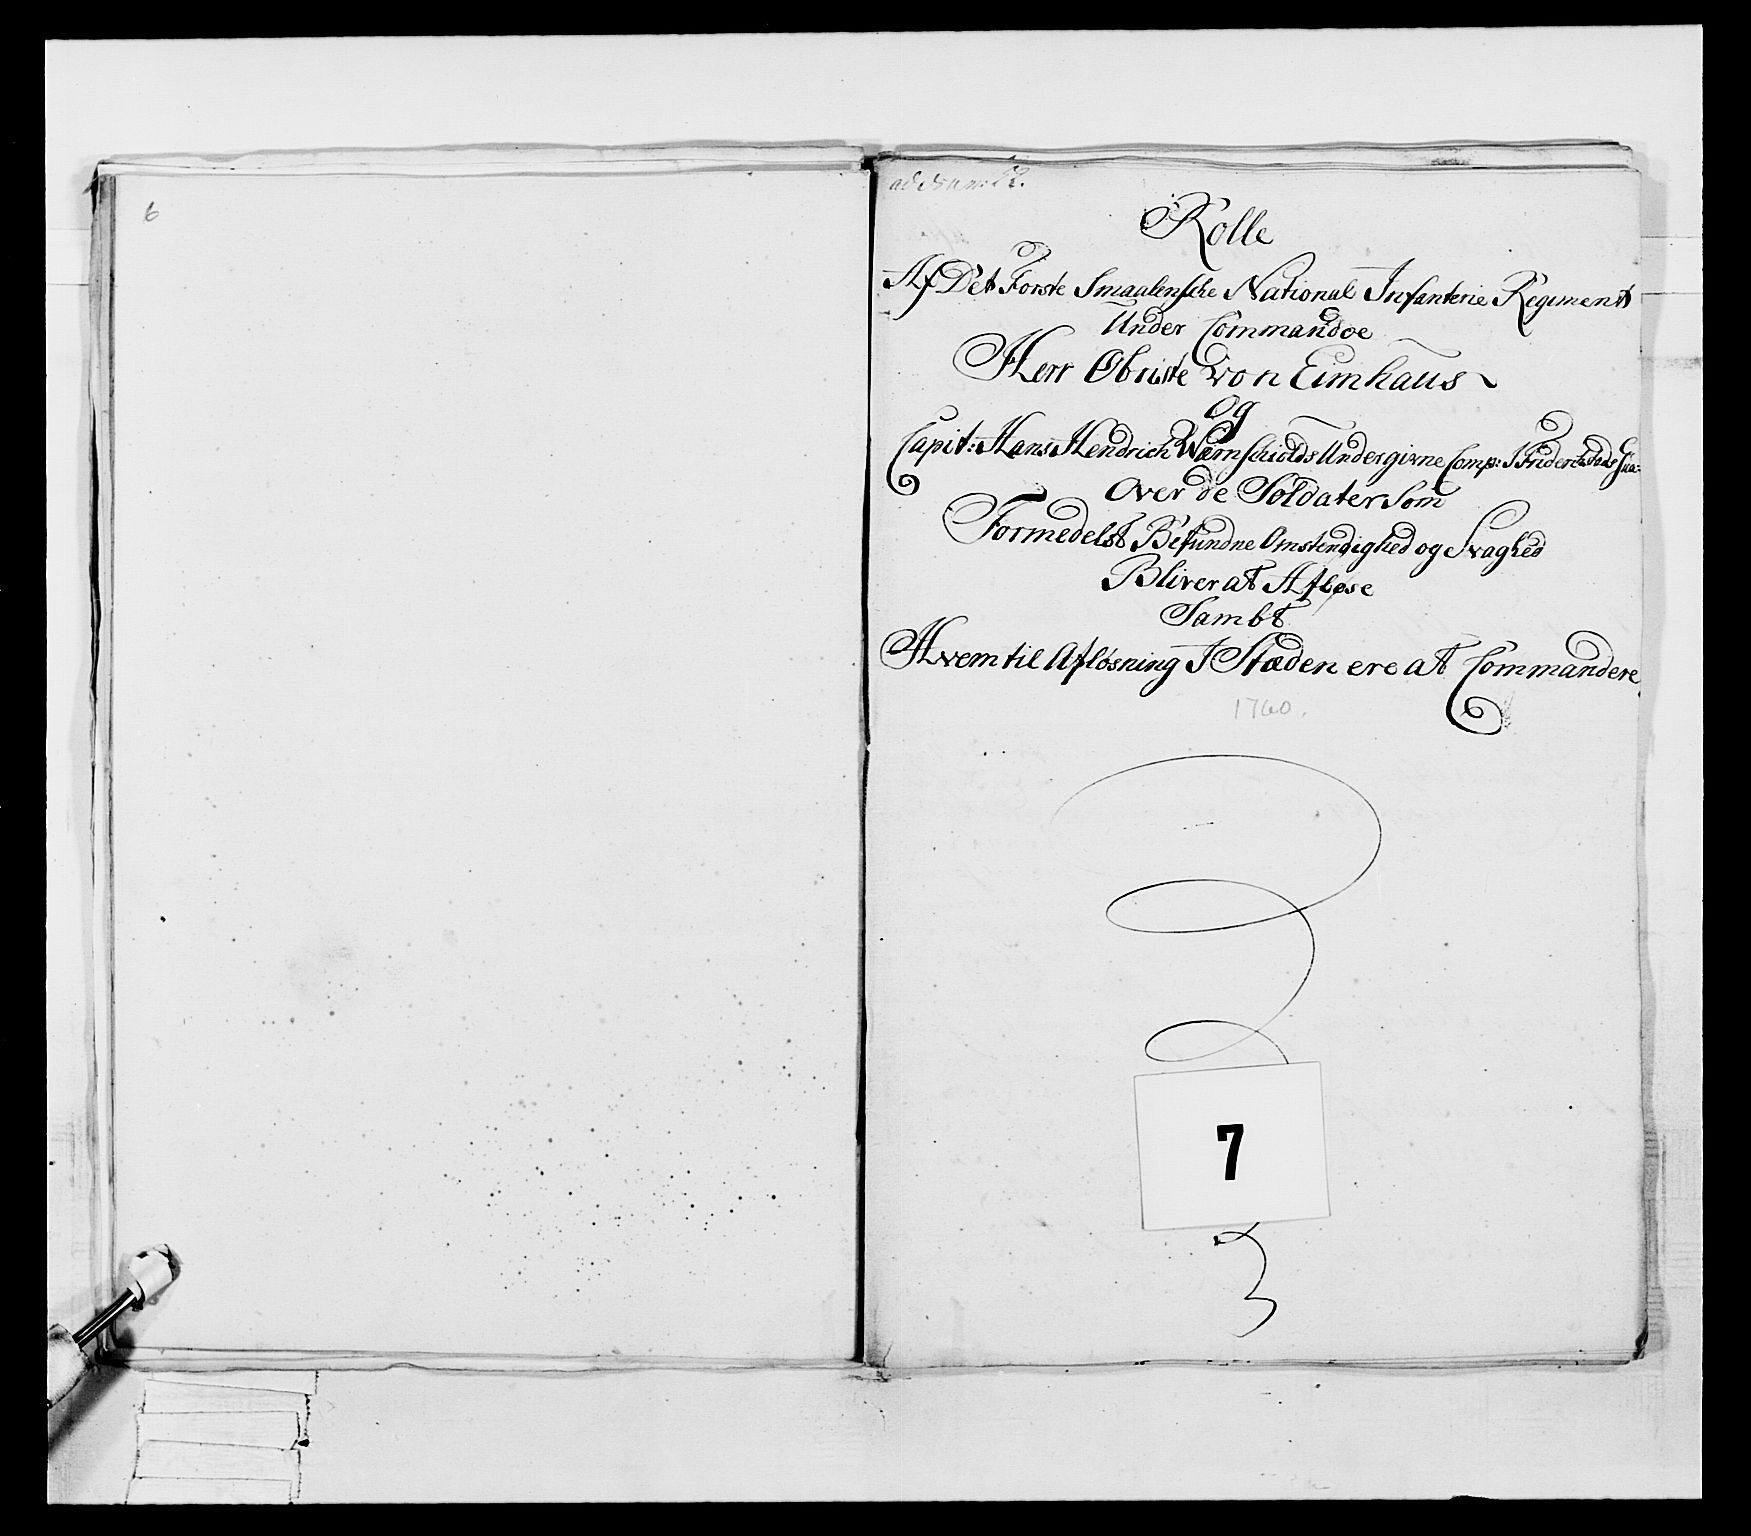 6
Rolle
Af Det Forste Smaalensche National Infanterie Regiment
Under Commandoe
Herr Obriste von Eimhaus
og
Capit: Hans Hendrich Wærnschiolds Undergivne Comp: I Friderichstads
Over de Soldater Som
Formedelst Befundne Omstendighed og Svaghed
Bliver at Afløse
Sambt
Hvem til Afløsning I Stæden ere at Commandere
1760.
7